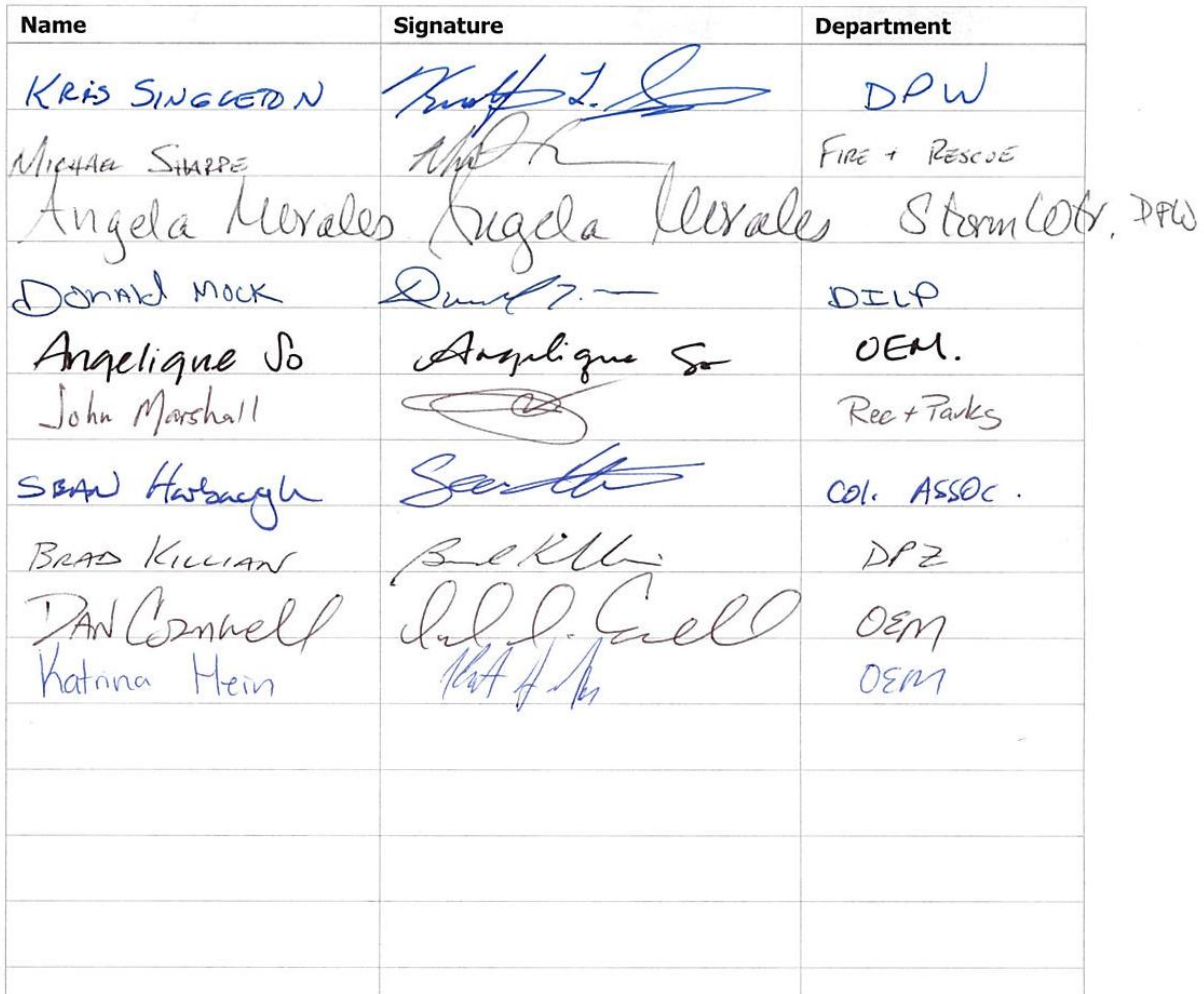 Name Signature Department
KRIS SINGLETON DPW
MICHAEL SHARPE FIRE + RESCUE
Angela Morales Angela Morales StormWtr. DPW
DONALD MOCK DILP
Angelique So Angelique So OEM.
John Marshall Rec + Parks
SEAN Harbaugh COl. ASSOC.
BRAD KILLIAN DPZ
DAN Cornwell OEM
Katrina Hein OEM